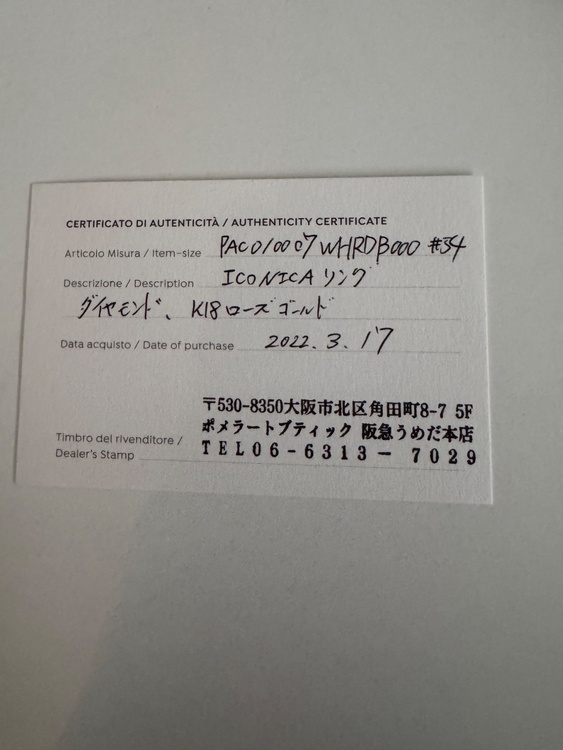 CERTIFICATO DI AUTENTICITÀ / AUTHENTICITY CERTIFICATE
Articolo Misura / Item-size PAC010007WHRDB000 #54
Descrizione / Description ICONICA リング
ダイヤモンド、K18ローズゴールド
Data acquisto / Date of purchase 2022.3.17
〒530-8350大阪市北区角田町8-7 5F
ポメラートブティック 阪急うめだ本店
Timbro del rivenditore /
Dealer's Stamp
TEL06-6313-7029